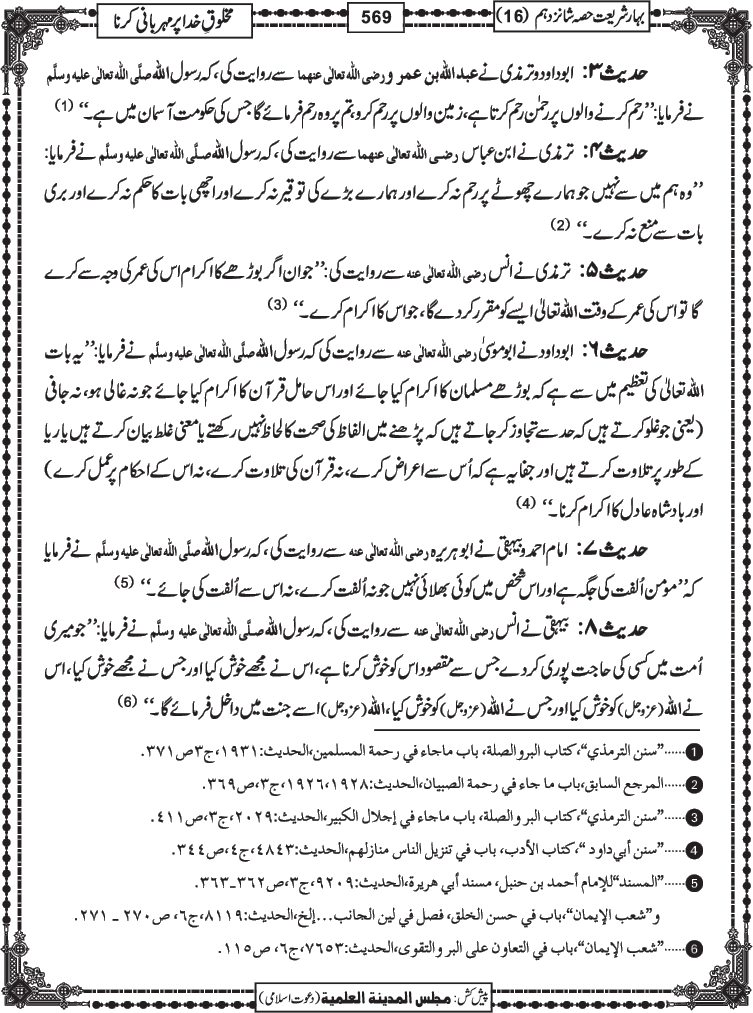 بہار شریعت حصہ شانزدہم (16)
569
مخلوقِ خدا پر مہربانی کرنا
حدیث ۳: ابوداود و ترمذی نے عبداللہ بن عمرو رضی اللہ تعالٰی عنہما سے روایت کی، کہ رسول اللہ صلَّی اللہ تعالٰی علیہ وسلَّم
نے فرمایا: ’’رحم کرنے والوں پر رحمٰن رحم کرتا ہے، زمین والوں پر رحم کرو، تم پر وہ رحم فرمائے گا جس کی حکومت آسمان میں ہے۔‘‘ (1)
حدیث ۴: ترمذی نے ابن عباس رضی اللہ تعالٰی عنھما سے روایت کی، کہ رسول اللہ صلَّی اللہ تعالٰی علیہ وسلَّم نے فرمایا:
’’وہ ہم میں سے نہیں جو ہمارے چھوٹے پر رحم نہ کرے اور ہمارے بڑے کی توقیر نہ کرے اور اچھی بات کا حکم نہ کرے اور بری
بات سے منع نہ کرے۔‘‘ (2)
حدیث ۵: ترمذی نے انس رضی اللہ تعالٰی عنہ سے روایت کی: ’’جوان اگر بوڑھے کا اکرام اس کی عمر کی وجہ سے کرے
گا تو اس کی عمر کے وقت اللہ تعالیٰ ایسے کو مقرر کردے گا، جو اس کا اکرام کرے۔‘‘ (3)
حدیث ۶: ابوداود نے ابو موسیٰ رضی اللہ تعالٰی عنہ سے روایت کی کہ رسول اللہ صلَّی اللہ تعالٰی علیہ وسلَّم نے فرمایا: ’’یہ بات
اللہ تعالیٰ کی تعظیم میں سے ہے کہ بوڑھے مسلمان کا اکرام کیا جائے اور اس حامل قرآن کا اکرام کیا جائے جو نہ غالی ہو، نہ جافی
(یعنی جو غلو کرتے ہیں کہ حد سے تجاوز کر جاتے ہیں کہ پڑھنے میں الفاظ کی صحت کا لحاظ نہیں رکھتے یا معنی غلط بیان کرتے ہیں یا ریا
کے طور پر تلاوت کرتے ہیں اور جفا یہ ہے کہ اُس سے اعراض کرے، نہ قرآن کی تلاوت کرے، نہ اس کے احکام پر عمل کرے)
اور بادشاہ عادل کا اکرام کرنا۔‘‘ (4)
حدیث ۷: امام احمد و بیہقی نے ابوہریرہ رضی اللہ تعالٰی عنہ سے روایت کی، کہ رسول اللہ صلَّی اللہ تعالٰی علیہ وسلَّم نے فرمایا
کہ ’’مومن اُلفت کی جگہ ہے اور اس شخص میں کوئی بھلائی نہیں جو نہ اُلفت کرے، نہ اس سے اُلفت کی جائے۔‘‘ (5)
حدیث ۸: بیہقی نے انس رضی اللہ تعالٰی عنہ سے روایت کی، کہ رسول اللہ صلَّی اللہ تعالٰی علیہ وسلَّم نے فرمایا: ’’جو میری
اُمت میں کسی کی حاجت پوری کردے جس سے مقصود اس کو خوش کرنا ہے، اس نے مجھے خوش کیا اور جس نے مجھے خوش کیا، اس
نے اللہ (عزوجل) کو خوش کیا اور جس نے اللہ (عزوجل) کو خوش کیا، اللہ (عزوجل) اسے جنت میں داخل فرمائے گا۔‘‘ (6)
1......”سنن الترمذي“،کتاب البر والصلة، باب ماجاء في رحمة المسلمین،الحدیث:۱۹۳۱،ج۳ص۳۷۱.
2......المرجع السابق،باب ما جاء في رحمة الصبیان،الحدیث:۱۹۲۶،۱۹۲۸،ج۳،ص۳۶۹.
3......”سنن الترمذي“، کتاب البر والصلة، باب ماجاء في إجلال الکبیر،الحدیث:۲۰۲۹،ج۳،ص۴۱۱.
4......”سنن أبي داود “،کتاب الأدب، باب في تنزیل الناس منازلھم،الحدیث:۴۸۴۳،ج۴،ص۳۴۴.
5......”المسند“للإمام أحمد بن حنبل، مسند أبي ھریرة،الحدیث:۹۲۰۹،ج۳،ص۳۶۲-۳۶۳.
و”شعب الإیمان“،باب في حسن الخلق، فصل في لین الجانب...إلخ،الحدیث:۸۱۱۹،ج۶، ص۲۷۰ ـ ۲۷۱.
6......”شعب الإیمان“،باب في التعاون علی البر والتقوی،الحدیث:۷۶۵۳،ج۶، ص۱۱۵.
پیش کش: مجلس المدینة العلمیة (دعوت اسلامی)